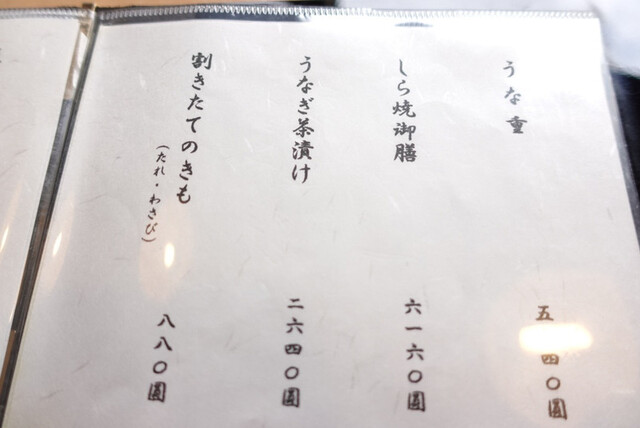 うな重
五 四〇圓
しら焼御膳
六一六〇圓
うなぎ茶漬け
二六四〇圓
割きたてのきも
(たれ・わさび)
八八〇圓